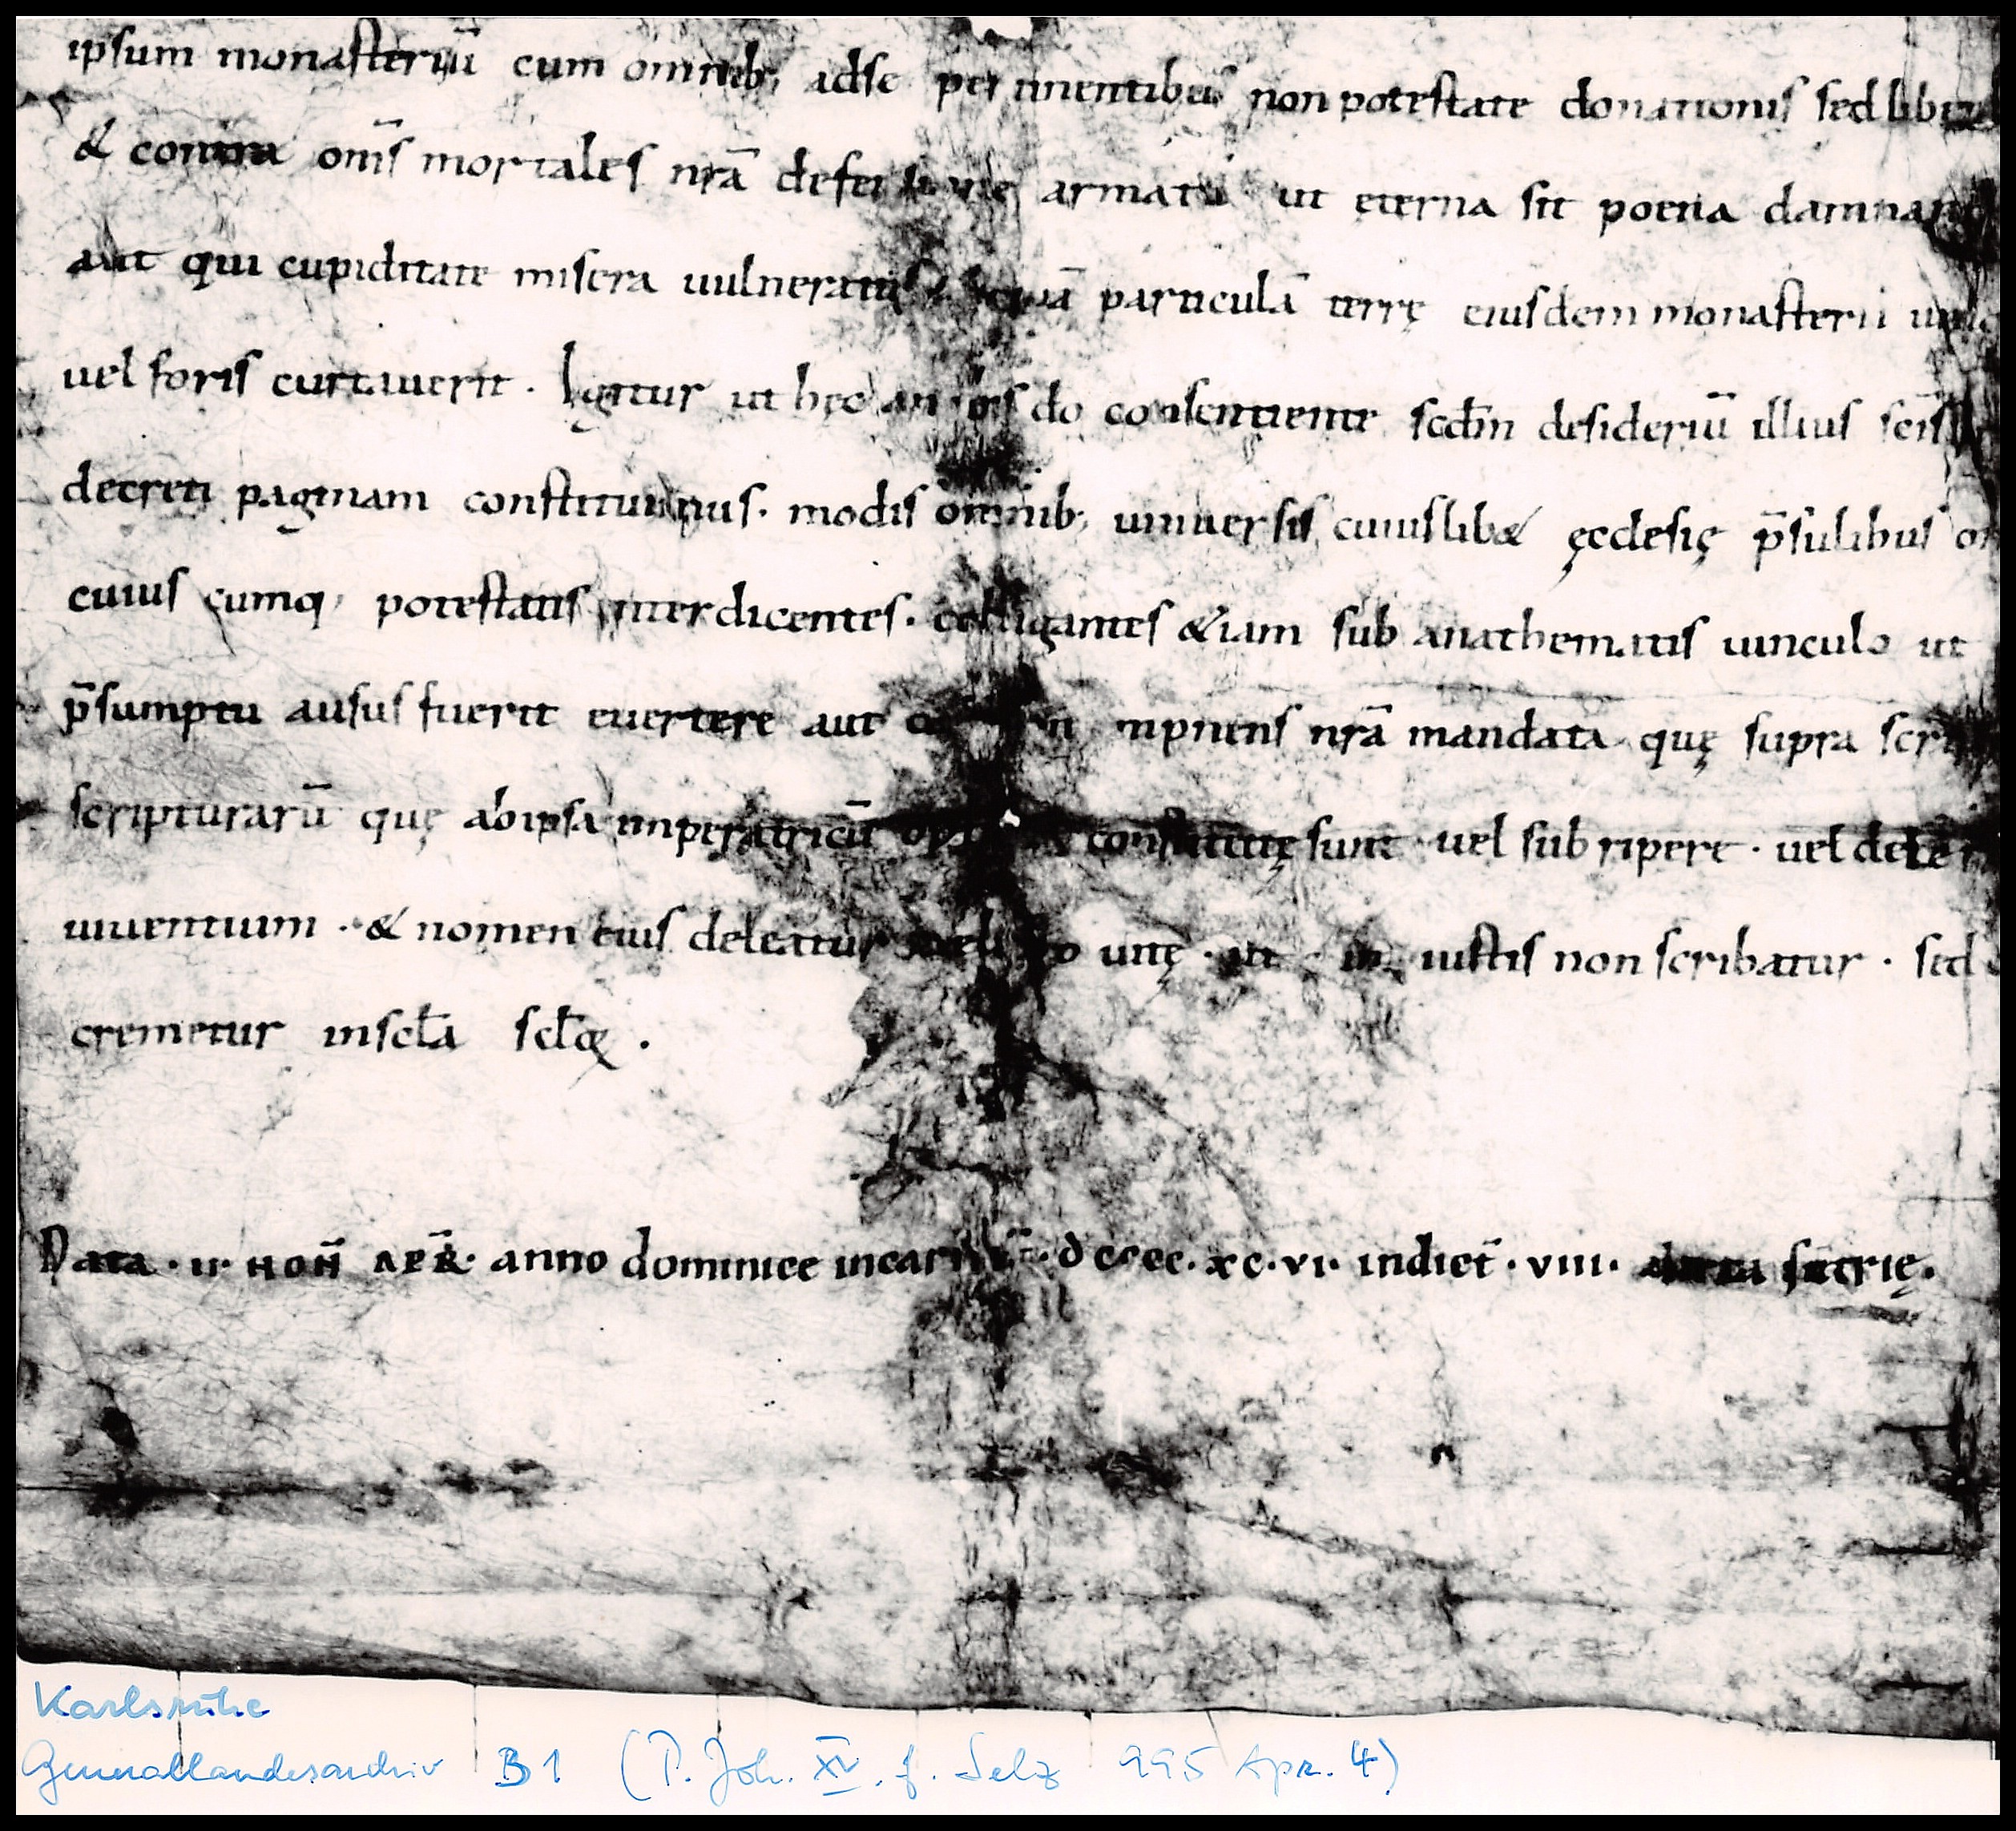 ipsum monasteriū cum omnib; adse pertinentibus non potestate donationis sed
& contra om̄s mortales nr̄ā defensione armatū ut ęterna sit poena
aut qui cupiditate misera uulneratus particulā terrę eiusdem monasterii
uel foris curtauerit . Igitur ut hęc do consentiente scd̄m desideriū illius
decreti paginam constituimus . modis omnib; uniuersis cuiuslib& ęcclesię p̄sulibus
cuius cumq; potestatis interdicentes . colligantes &iam sub anathematis uinculo ut
p̄sumptu ausus fuerit euertere aut nr̄ā mandata quę supra
scripturarū quę abipsa imperatricū constitutę sunt uel subripere . uel
uiuentium . & nomen eius deleatur uitę . ut iustis non scribatur . sed
cremetur inscl̄a scl̄oꝝ .
Data . II . NON̄ APR̄ . anno dominice incarnat̄ . dcccc . xc . vi . indict̄ . viii . sutrię .
Karlsruhe
Generallandesarchiv B1 (P. Joh. XV. f. Selz 995 Apr. 4)